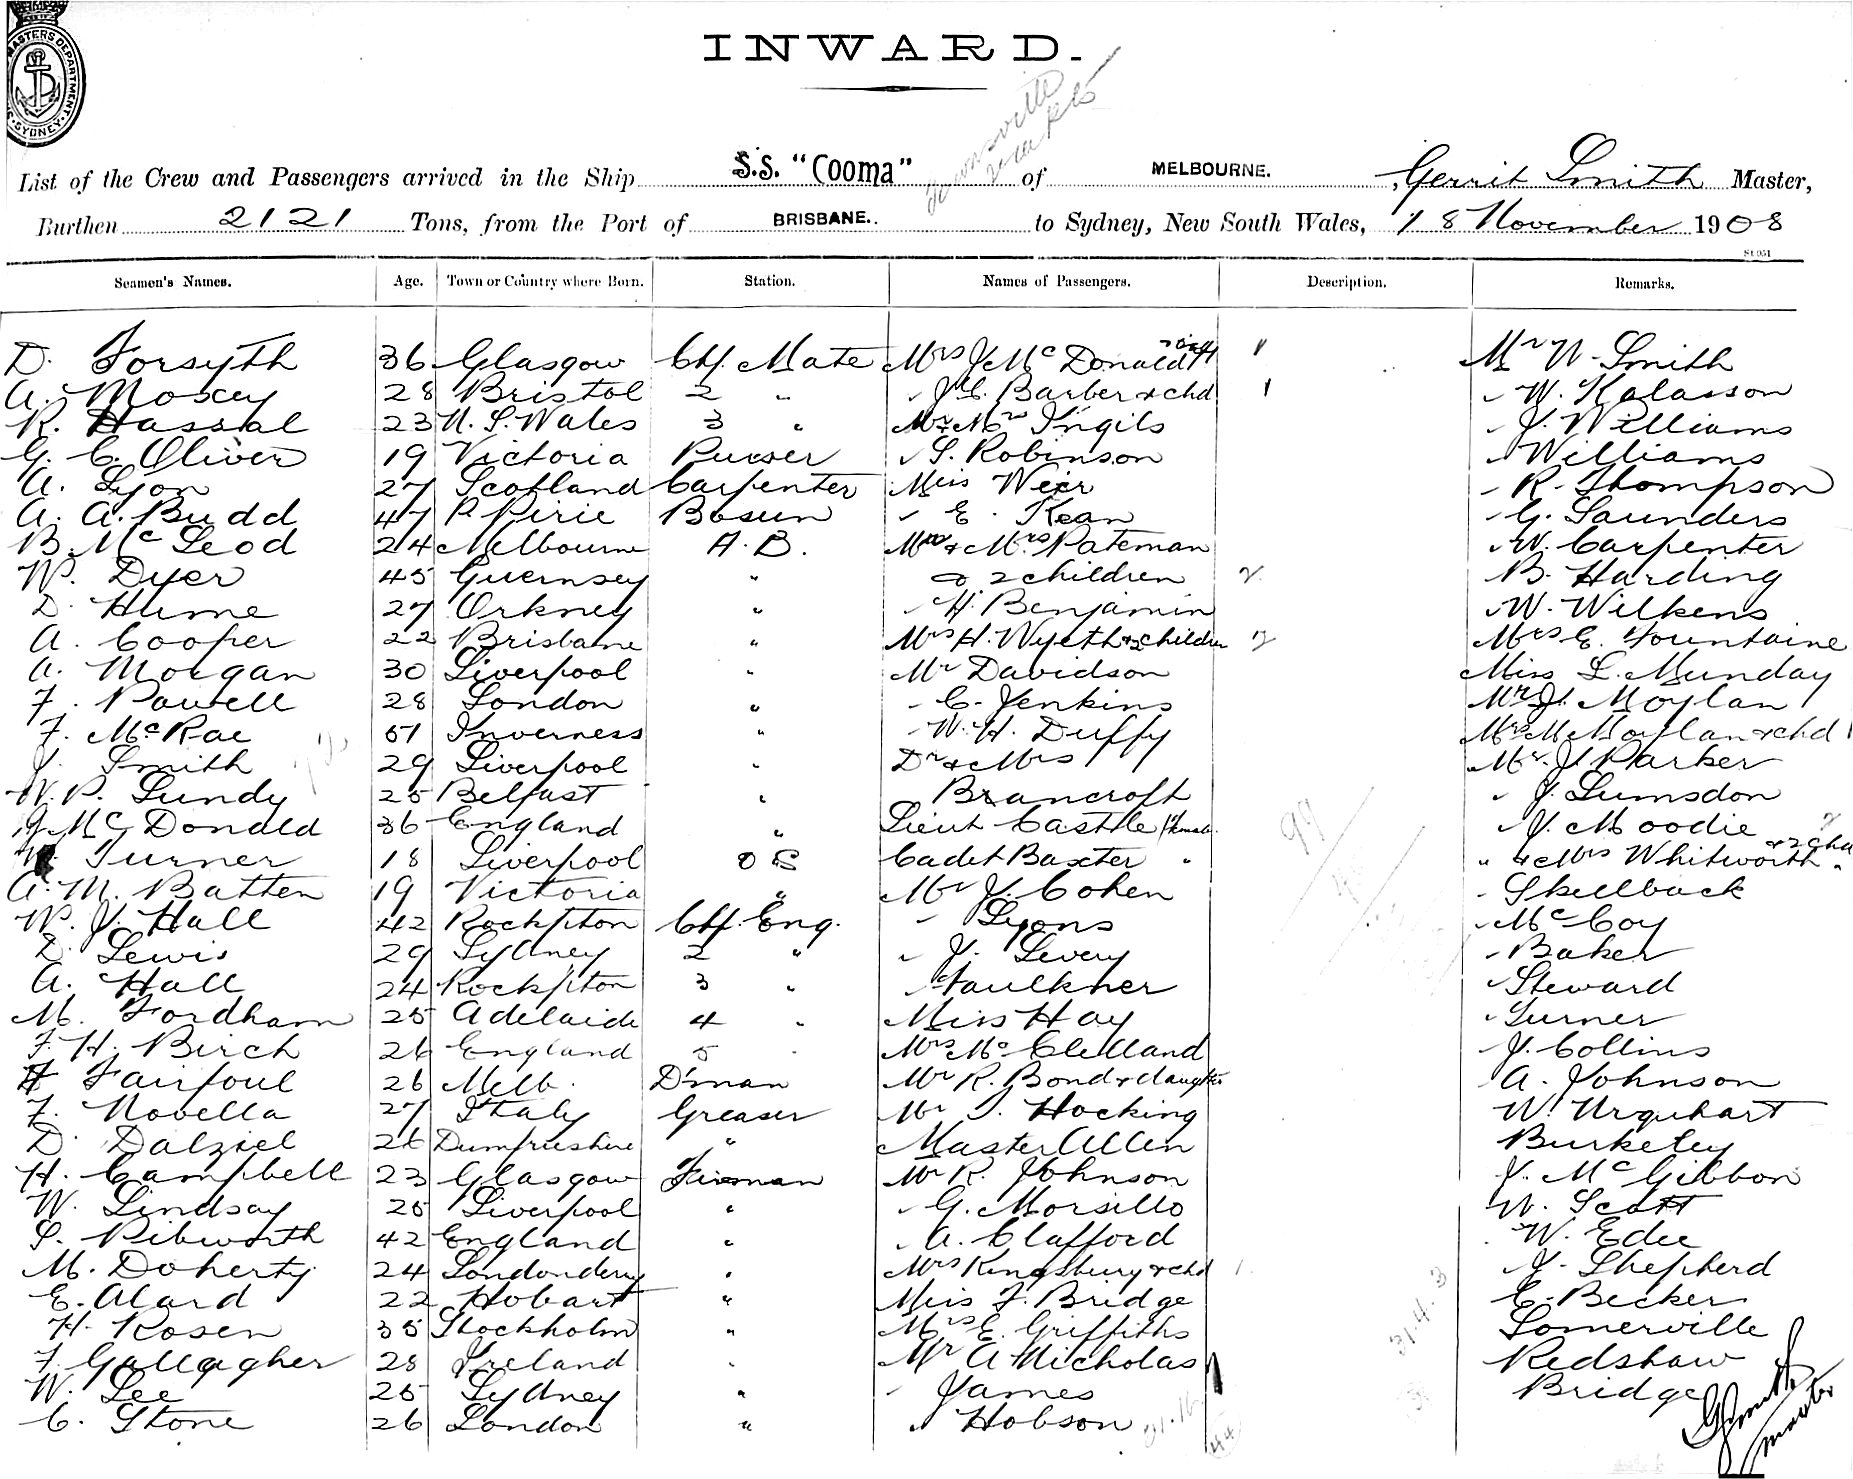 MASTERS DEPARTMENT
SYDNEY
INWARD.
Townsville
List of the Crew and Passengers arrived in the Ship S.S. "Cooma" of MELBOURNE. Gerrit Smith Master,
Burthen 2121 Tons, from the Port of BRISBANE.. to Sydney, New South Wales, 18 November 1908
Seamen's Names. Age. Town or Country where Born. Station. Names of Passengers. Description. Remarks.
D. Forsyth 36 Glasgow Chf. Mate Mrs J. McDonald Mr W. Smith
A. Moxey 28 Bristol 2 " " Barber & chd 1 " W. Kalasson
R. Hassal 23 N. S. Wales 3 " Ingils " J. Williams
G. C. Oliver 19 Victoria Purser " S. Robinson " Williams
A. Lyon 27 Scotland Carpenter Miss Weir " R. Thompson
A. A. Budd 47 P. Pirie Bosun " E. Kean " G. Saunders
B. McLeod 24 Melbourne A. B. Mr & Mrs Pateman " W. Carpenter
W. Dyer 45 Guernsey " & 2 children 2 " B. Harding
D. Hume 27 Orkney " " H. Benjamin " W. Wilkens
A. Cooper 22 Brisbane " Mrs H. Wyeth & 2 children 2 Mrs E. Fountaine
A. Morgan 30 Liverpool " Mr Davidson Miss L. Munday
F. Powell 28 London " " C. Jenkins Mr J. Moylan
F. McRae 51 Inverness " " W. H. Duffy Mrs M Moylan & chd 1
J. Smith 29 Liverpool " Dr & Mrs Mr J. Parker
W. P. Lundy 25 Belfast " Brancroft " J. Lumsdon
J. McDonald 36 England " Lieut Castle " J. Moodie
Turner 18 Liverpool O S Cadet Baxter " " & Mrs Whitworth
A. M. Batten 19 Victoria " Mr J. Cohen " Skellback
W. J. Hall 42 Rockpton Chf. Eng. " Lyons " McCoy
D. Lewis 29 Sydney 2 " " J. Levery " Baker
A. Hall 24 Rockpton 3 " " Faulkner " Steward
M. Fordham 25 Adelaide 4 " Miss Hay " Turner
F. H. Birch 26 England 5 " Mrs McClelland " J. Collins
Fairfoul 26 Melb. D'man Mr R. Bond & daughter " A. Johnson
F. Novella 27 Italy Greaser Mr J. Hocking " W. Urquhart
D. Dalziel 26 Dumfrieshire " Master Allen Burkeley
H. Campbell 23 Glasgow Fireman Mr R. Johnson J. McGibbon
W. Lindsay 25 Liverpool " " G. Morsillo W. Scott
S. Pibworth 42 England " " A. Clafford " W. Edee
M. Doherty 24 Londonderry " Mrs Kingsbury & chd 1 " J. Shepherd
E. Alard 22 Hobart " Miss F. Bridge C. Becker
H. Rosen 35 Stockholm " Mrs E. Griffiths Somerville
F. Gallagher 28 Ireland " Mr A Nicholas Redshaw
W. Lee 25 Sydney " " James Bridge
C. Stone 26 London " " Hobson
G Smith
master